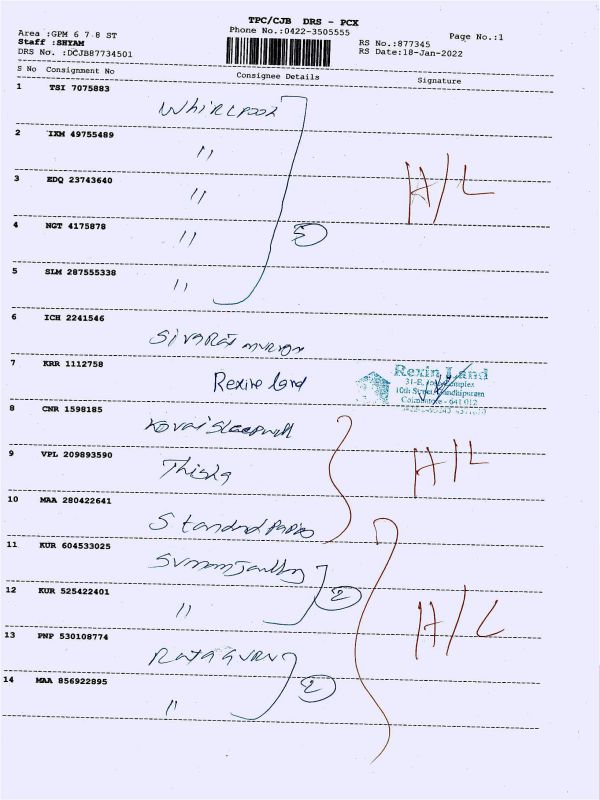 TPC/CJB DRS - PCX
Area :GPM 6 7 8 ST Phone No.:0422-3505555 Page No.:1
Staff :SHYAM RS No.:877345
DRS No. :DCJB87734501 RS Date:18-Jan-2022
S No Consignment No Consignee Details Signature
1 TSI 7075883
Whirlpool
2 IXM 49755489
"
3 EDQ 23743640
" H/L
4 NGT 4175878
" 5
5 SLM 287555338
"
6 ICH 2241546
7 KRR 1112758
Rexine land
Rexin Land
10th Street Gandhipuram
Coimbatore - 641 012
8 CNR 1598185
9 VPL 209893590
H/L
10 MAA 280422641
11 KUR 604533025
12 KUR 525422401
" 2
H/L
13 PNP 530108774
14 MAA 856922895
" 2